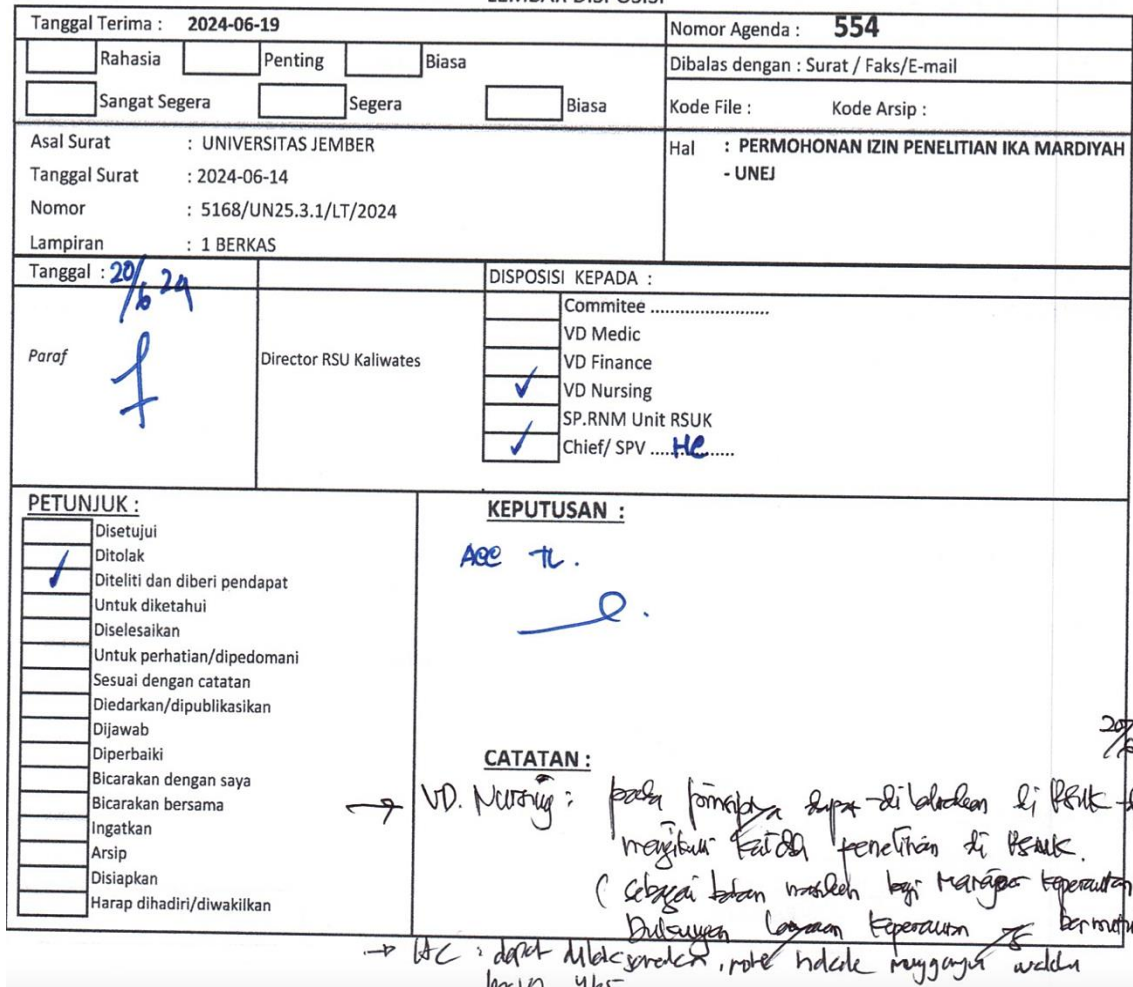 LEMBAR DISPOSISI
Tanggal Terima : 2024-06-19
Nomor Agenda : 554
Rahasia Penting Biasa
Dibalas dengan : Surat / Faks/E-mail
Sangat Segera Segera Biasa
Kode File : Kode Arsip :
Asal Surat : UNIVERSITAS JEMBER
Hal : PERMOHONAN IZIN PENELITIAN IKA MARDIYAH
- UNEJ
Tanggal Surat : 2024-06-14
Nomor : 5168/UN25.3.1/LT/2024
Lampiran : 1 BERKAS
Tanggal : 20/6 24
DISPOSISI KEPADA :
Commitee ........................
VD Medic
Paraf
Director RSU Kaliwates
VD Finance
VD Nursing
SP.RNM Unit RSUK
Chief/ SPV ..... HC ......
PETUNJUK :
Disetujui
Ditolak
Diteliti dan diberi pendapat
Untuk diketahui
Diselesaikan
Untuk perhatian/dipedomani
Sesuai dengan catatan
Diedarkan/dipublikasikan
Dijawab
Diperbaiki
Bicarakan dengan saya
Bicarakan bersama
Ingatkan
Arsip
Disiapkan
Harap dihadiri/diwakilkan
KEPUTUSAN :
ACC TL.
CATATAN :
→ VD. Nursing : pada prinsipnya dapat di di RSUK
mengikuti kaidah penelitian di RSUK.
( sebagai bahan bagi Manajer keperawatan
Dukungan layanan keperawatan yg bermutu
→ HC : dapat dilaksanakan, tidak mengganggu waktu